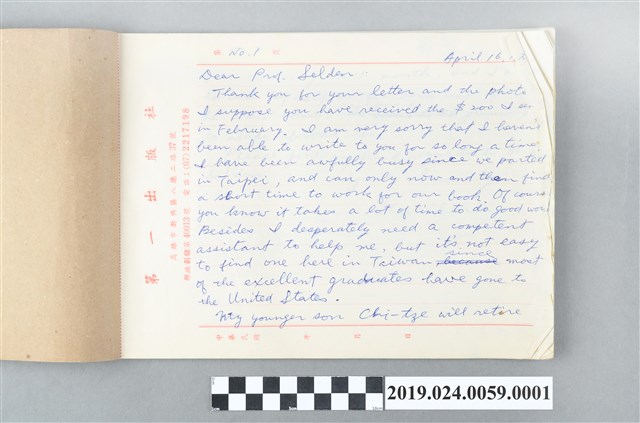 第 No. 1 頁
April 16,
Dear Prof. Selden:
Thank you for your letter and the photo
I suppose you have received the $200 I
in February. I am very sorry that I haven't
been able to write to you for so long a time.
I have been awfully busy since we parted
in Taipei, and can only now and then find
a short time to work for our book. Of course
you know it takes a lot of time to do good
Besides I desperately need a competent
assistant to help me, but it's not easy
to find one here in Taiwan because since most
of the excellent graduates have gone to
the United States.
My younger son Chi-tze will retire
中華民國 年 月 日
第一出版社
2019.024.0059.0001